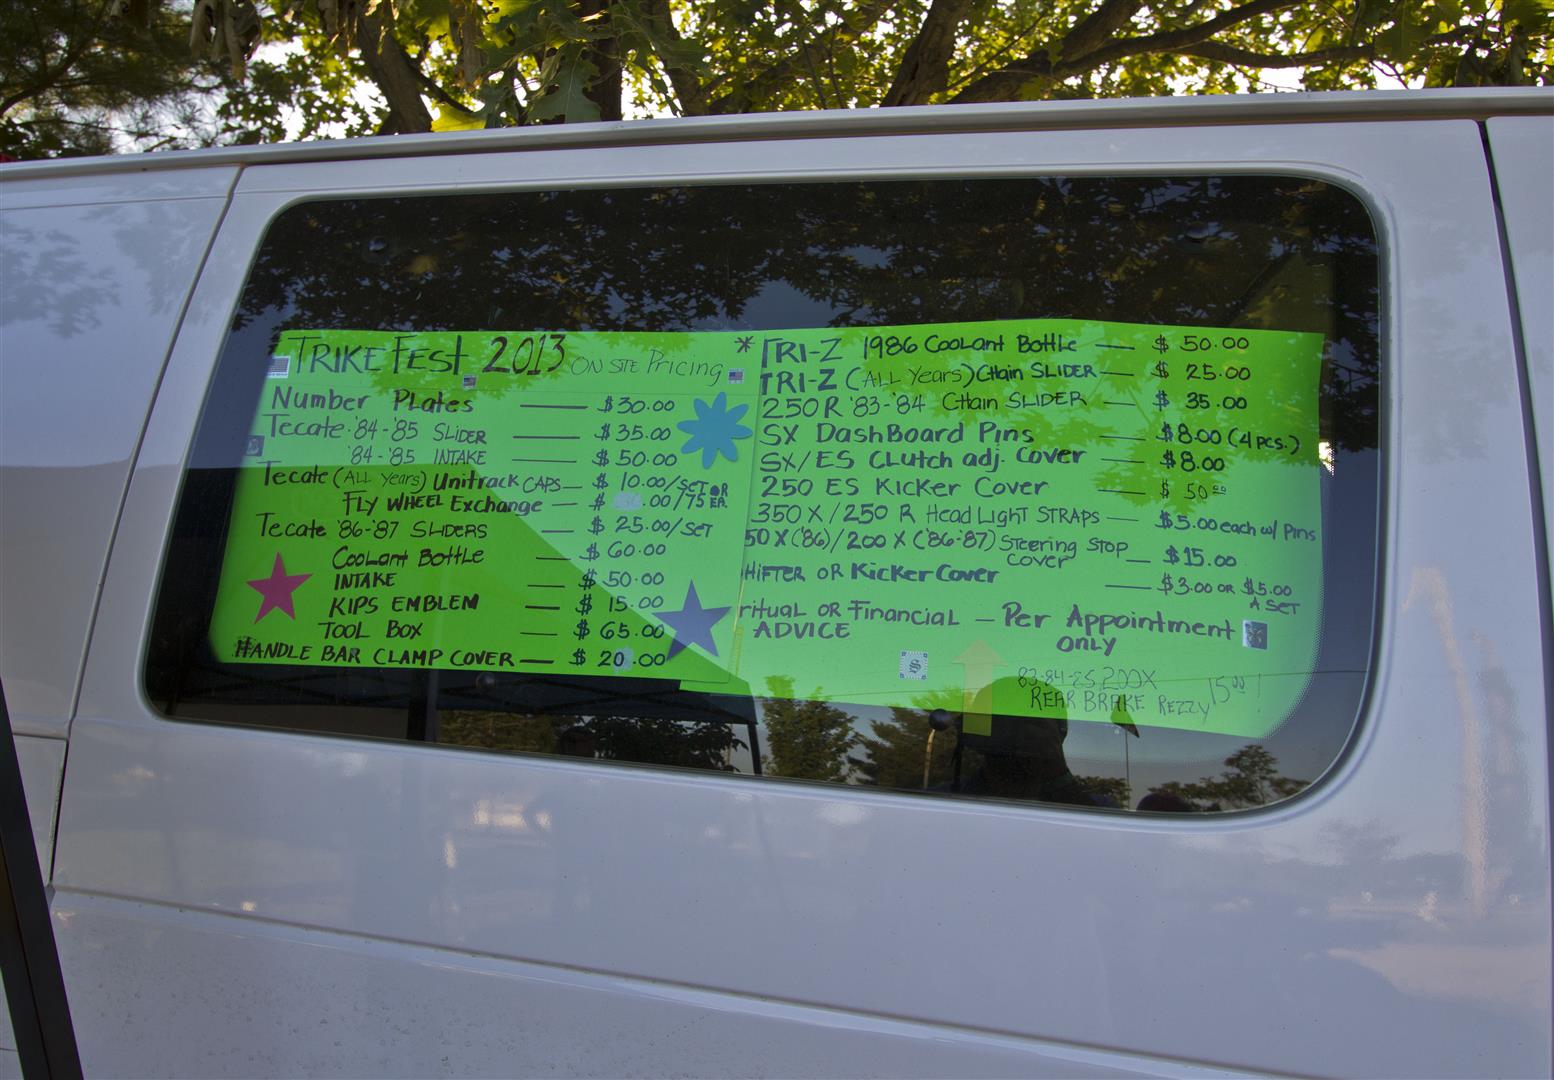 * TRIKE FEST 2013 ON SITE Pricing *
Number Plates — $30.00
Tecate '84-'85 SLIDER — $35.00
'84-'85 INTAKE — $50.00
Tecate (ALL Years) Unitrack CAPS — $10.00/SET OR
FLY WHEEL Exchange — $ .00/75 EA.
Tecate '86-'87 SLIDERS — $25.00/SET
Coolant Bottle — $60.00
INTAKE — $50.00
KIPS EMBLEM — $15.00
TOOL BOX — $65.00
HANDLE BAR CLAMP COVER — $20.00
TRI-Z 1986 Coolant Bottle — $50.00
TRI-Z (ALL Years) CHain SLIDER — $25.00
250R '83-'84 CHain SLIDER — $35.00
SX DashBoard Pins — $8.00 (4 pcs.)
SX/ES CLutch adj. Cover — $8.00
250 ES Kicker Cover — $50.00
350X/250R Head Light STRAPS — $5.00 each w/ Pins
50X ('86)/200X ('86-'87) Steering Stop — $15.00
Cover
HIFTER OR Kicker Cover — $3.00 OR $5.00
A SET
ritual OR Financial — Per Appointment
ADVICE ONLY
S
83-84-85 200X
REAR BRAKE REZZY 15.00!